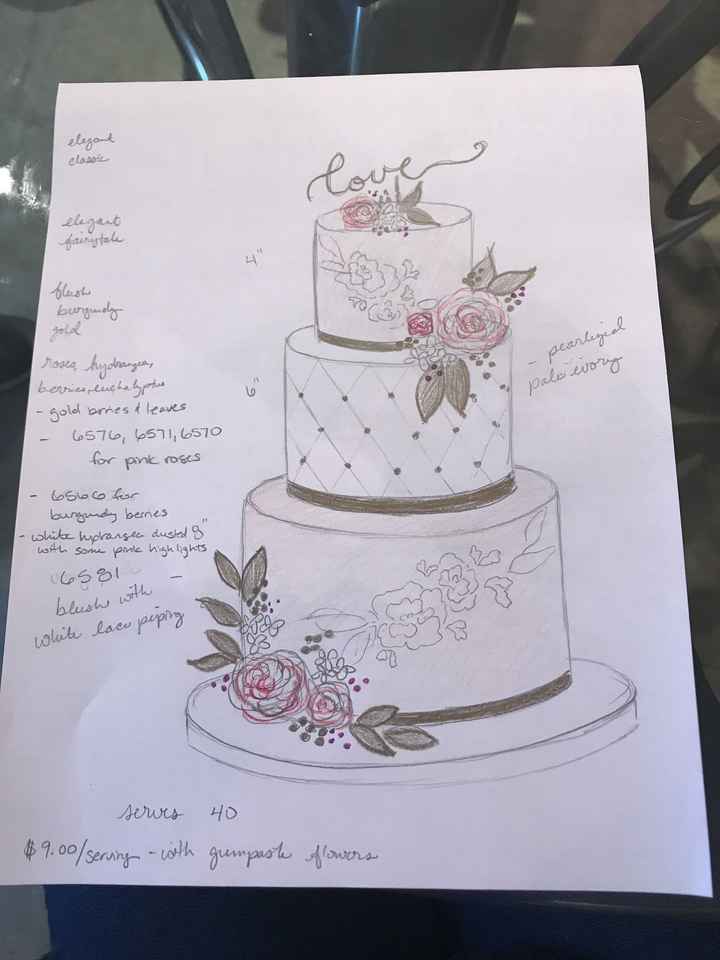 love
elegant
classic
elegant
fairytale
4"
blush
burgundy
gold
- pearlized
pale ivory
roses, hydrangea,
berries, eucalyptus
6"
- gold berries & leaves
- 6576, 6571, 6570
for pink roses
- 6566 for
burgundy berries
- white hydrangea dusted
with some pink highlights
8"
6581 -
blush with
white lace piping
serves 40
$9.00/serving - with gumpaste flowers